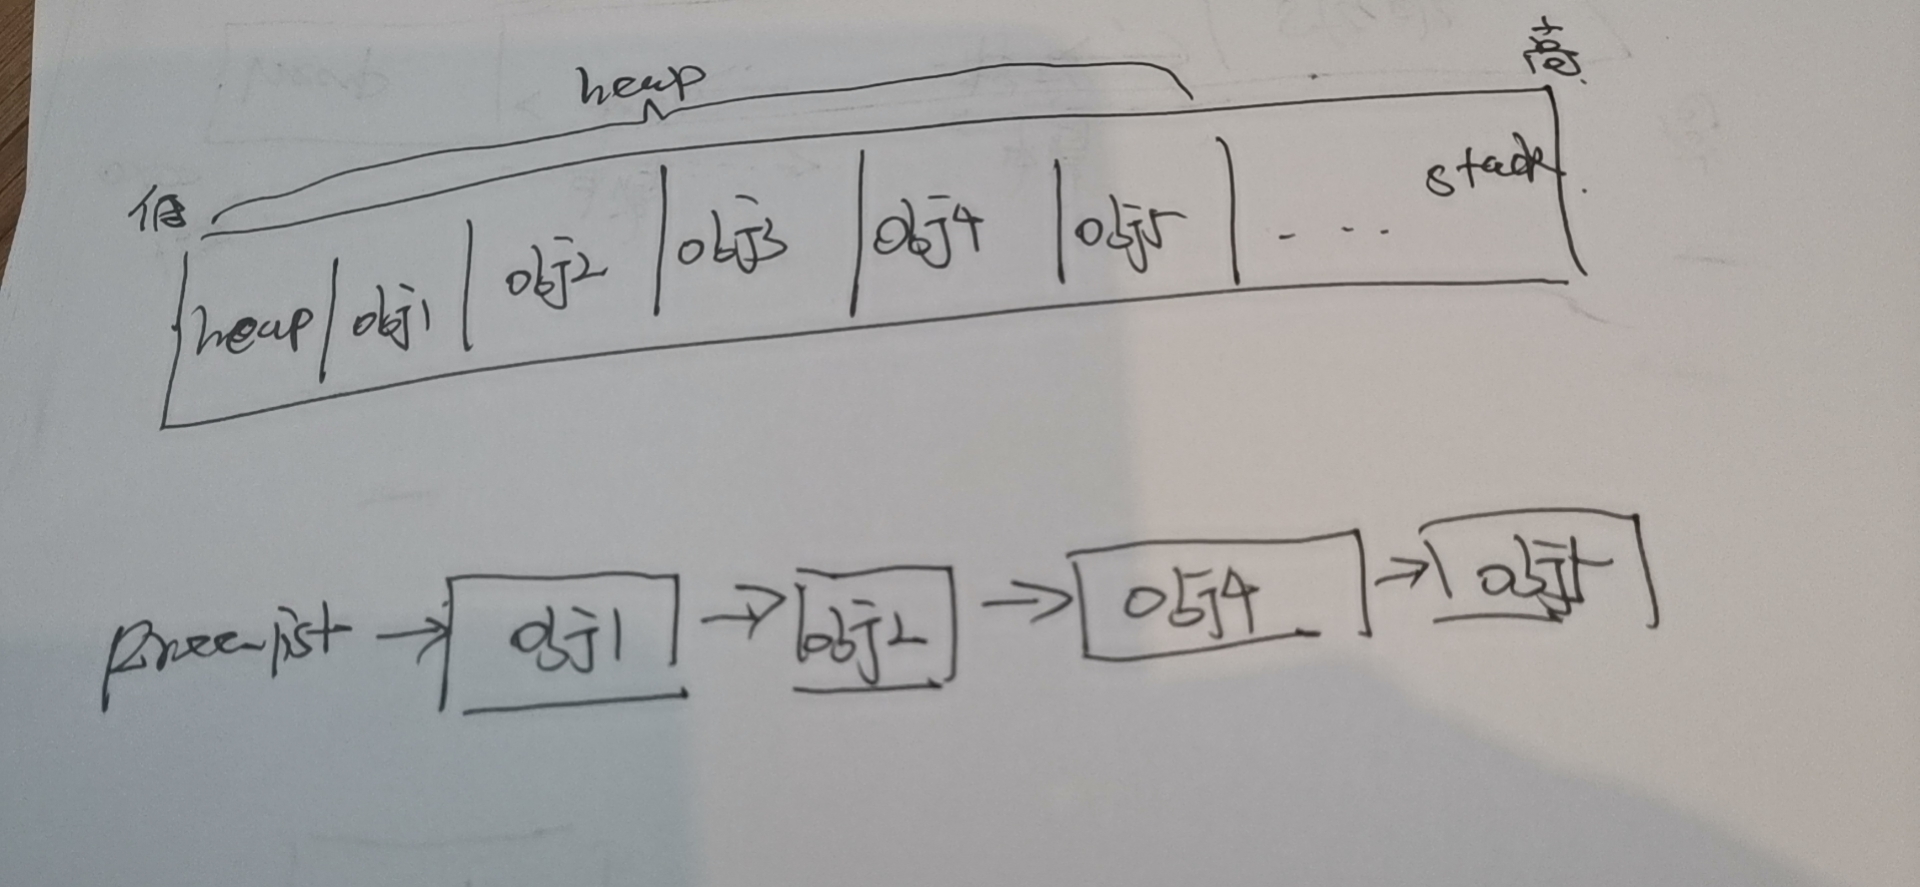 heap
高
低
heap obj1 obj2 obj3 obj4 obj5 ... stack
free_list → obj1 → obj2 → obj4 → obj5